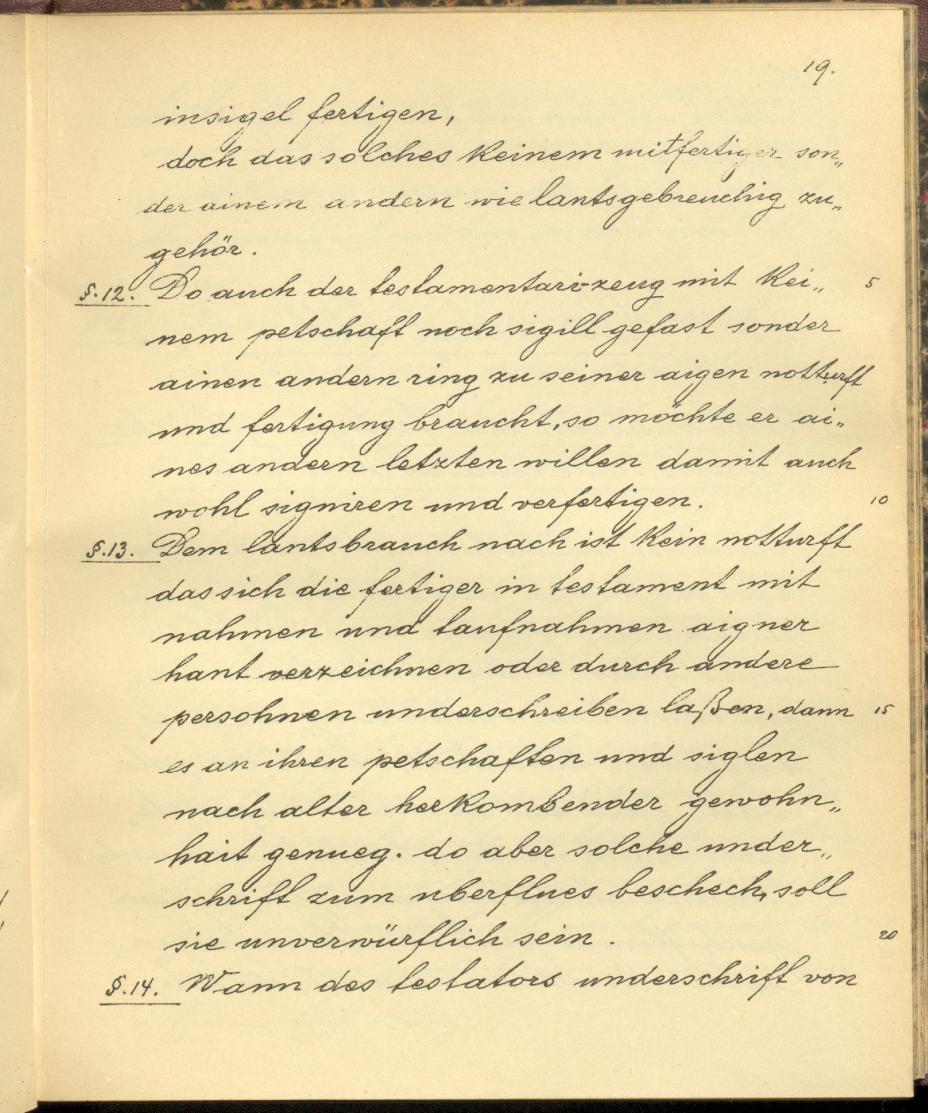 19.
insigel fertigen,
doch das solches keinem mitfertiger son„
der ainem andern wie lantsgebreuchig zu„
gehör.
§.12. Do auch der testamentari-zeug mit kei„ 5
nem petschaft noch sigill gefast sonder
ainen andern ring zu seiner aigen notturft
und fertigung braucht, so möchte er ai„
nes andern letzten willen damit auch
wohl signiren und verfertigen. 10
§.13. Dem lantsbrauch nach ist kein notturft
das sich die fertiger in testament mit
nahmen und taufnahmen aigner
hant verzeichnen oder durch andere
persohnen underschreiben laßen, dann 15
es an ihren petschaften und siglen
nach alter herkombender gewohn„
hait genueg. do aber solche under„
schrift zum uberflues beschech, soll
sie unverwürflich sein. 20
§.14. Wann des testators underschrift von